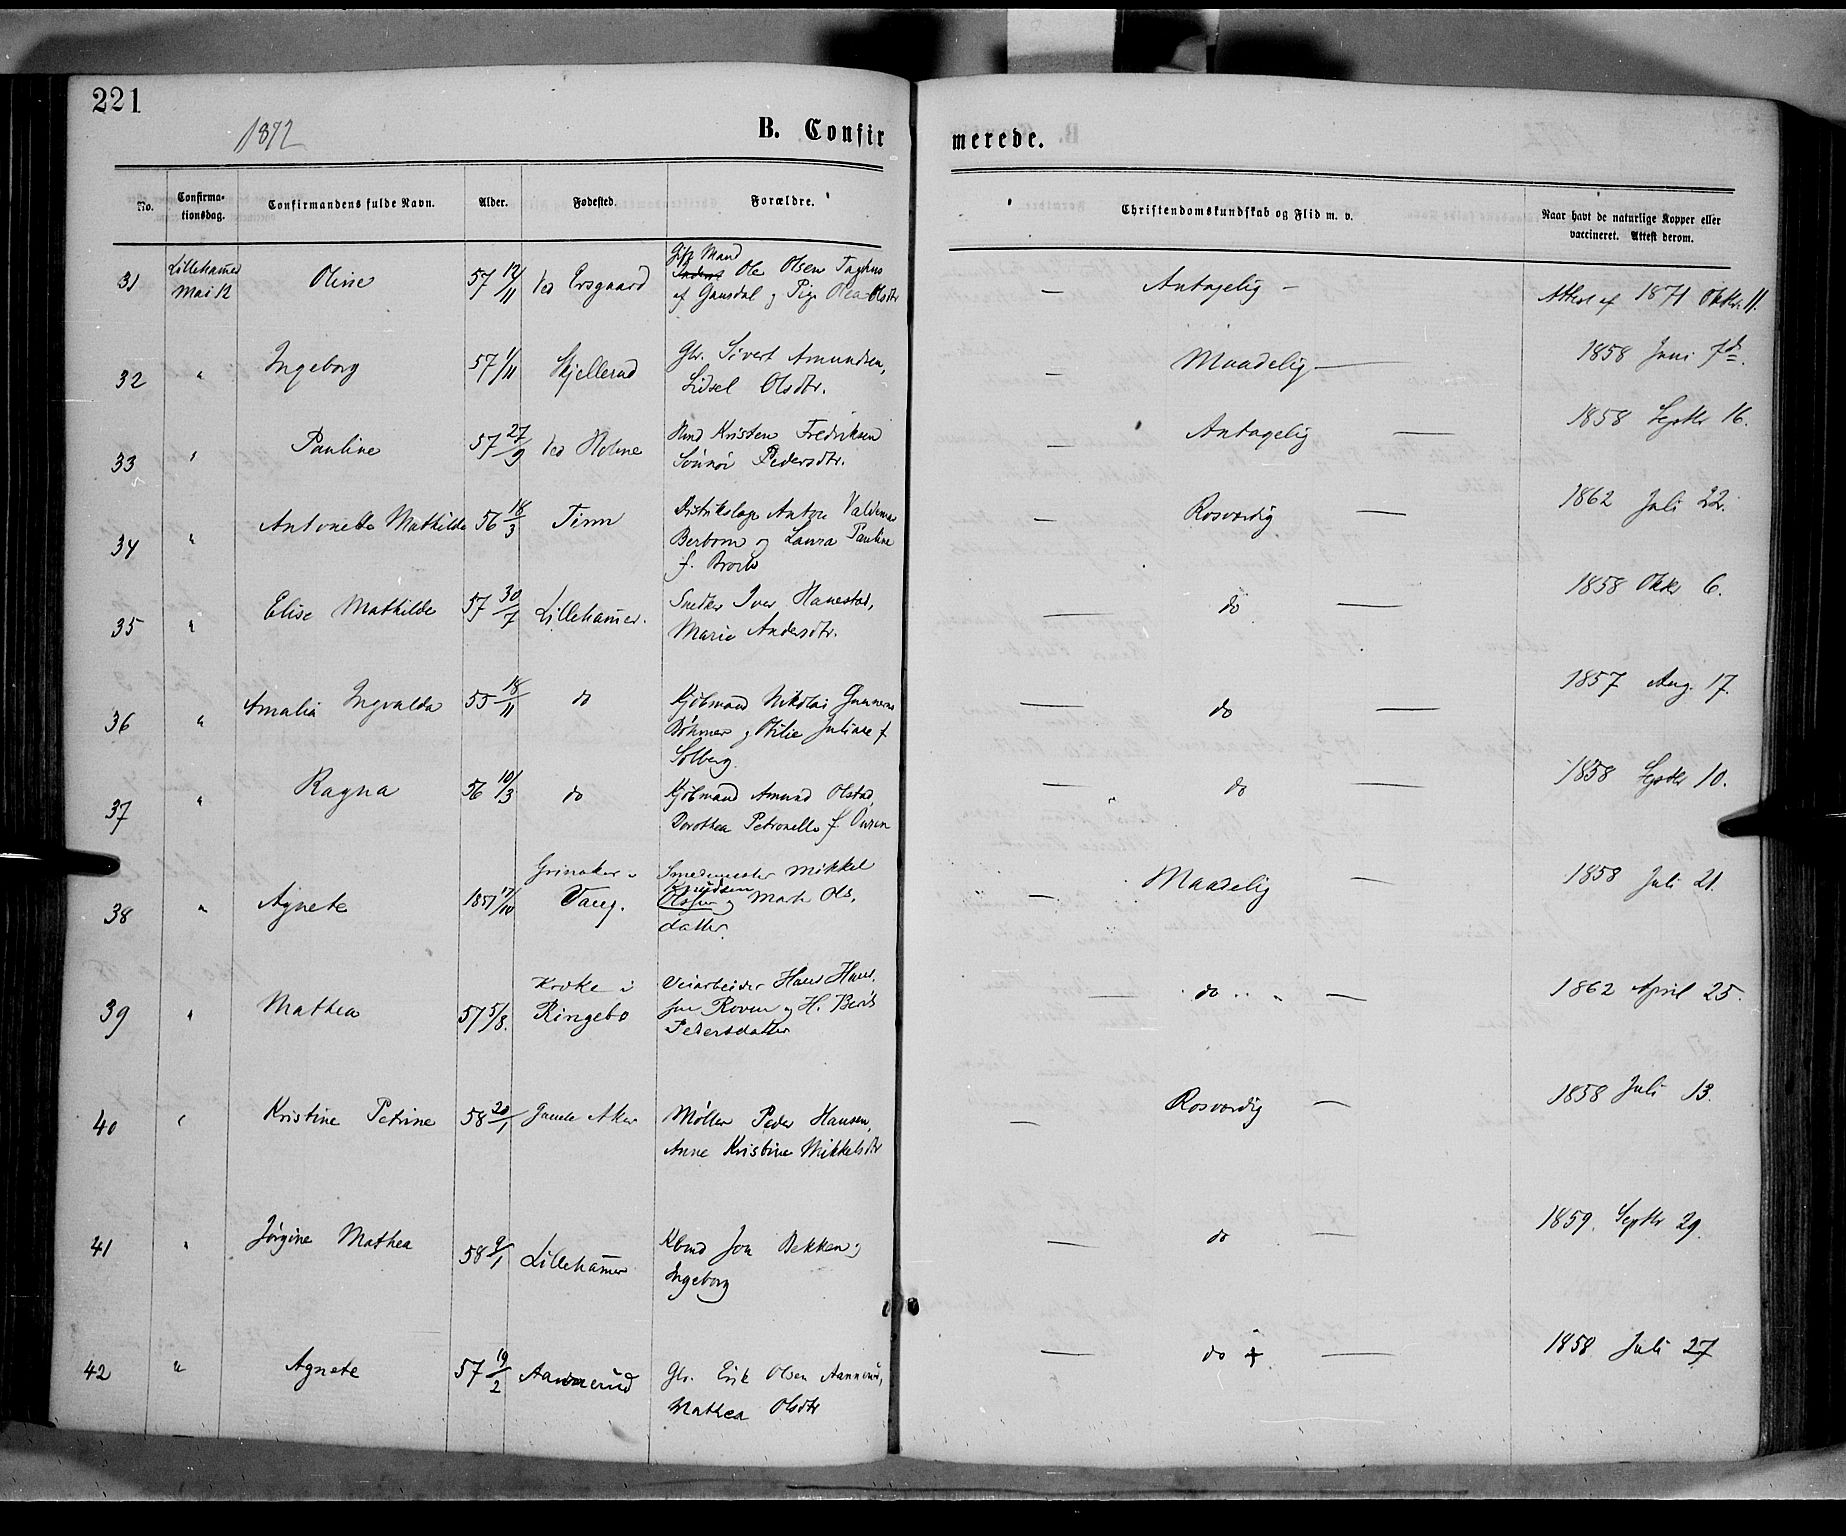 221
1872
B. Confirmerede.
No. Confirmationsdag. Confirmandens fulde Navn. Alder. Fødested. Forældre. Christendomskundskab og Flid m. v. Naar havt de naturlige Kopper eller vaccineret. Attest derom.
31 Lillehamer Mai 12 Oline 57 12/11 ved Ersgaard Gift Mand Ole Olsen
af Gausdal og Pige Olea Olsdtr — Antagelig — Attest af 1871 Oktbr. 11.
32 " Ingeborg 57 1/11 Skjellerud Gbr. Sivert Amundsen,
Lidsel Olsdtr. — Maadelig — 1858 Juni 7de.
33 " Pauline 57 27/9 ved Holme Hmd Kristen Fredriksen
Pedersdtr. — Antagelig — 1858 Septbr 16.
34 " Antonette Mathilde 56 18/3 Tinn Distrikslæge Anton Valdemar
og Laura Pauline
f. — Rosværdig — 1862 Juli 22.
35 " Elise Mathilde 57 30/7 Lillehamer. Snedker Iver Hanestad,
Marie Andersdtr. — do — 1858 Oktbr 6.
36 " Amalia Ingvalda 55 18/11 do Kjøbmand Nikolai Gunnerus
Bøhmer og Otilie Juliane f
Solberg. — do — 1857 Aug. 17.
37 " Ragna 56 10/3 do Kjøbmand Amund Olstad,
Dorothea Petronelle f. — do — 1858 Septbr 10.
38 " Agnete 1857 17/10 Grinaker i
Vang. Smedmester Mikkel
Knudsen
Olsen og Marte Ols,
datter. — Maadelig — 1858 Juli 21.
39 " Mathea 57 5/8. Kroke i
Ringebo Veiarbeider Hans Hans,
sen Roven og H. Berit
Pedersdatter — do " " — 1862 April 25.
40 " Kristine Petrine 58 20/1 Gamle Aker Møller Peder Hansen,
Anne Kristine Mikkelsdtr — Rosværdig — 1858 Juli 13.
41 " Jørgine Mathea 58 9/1 Lillehamer Kbmd Jon Bekken og
Ingeborg — do — 1859. Septbr 29.
42 " Agnete 57 19/2 Aannerud Gbr. Erik Olsen Aannerud,
Mathea Olsdtr — do + — 1858 Juli 27